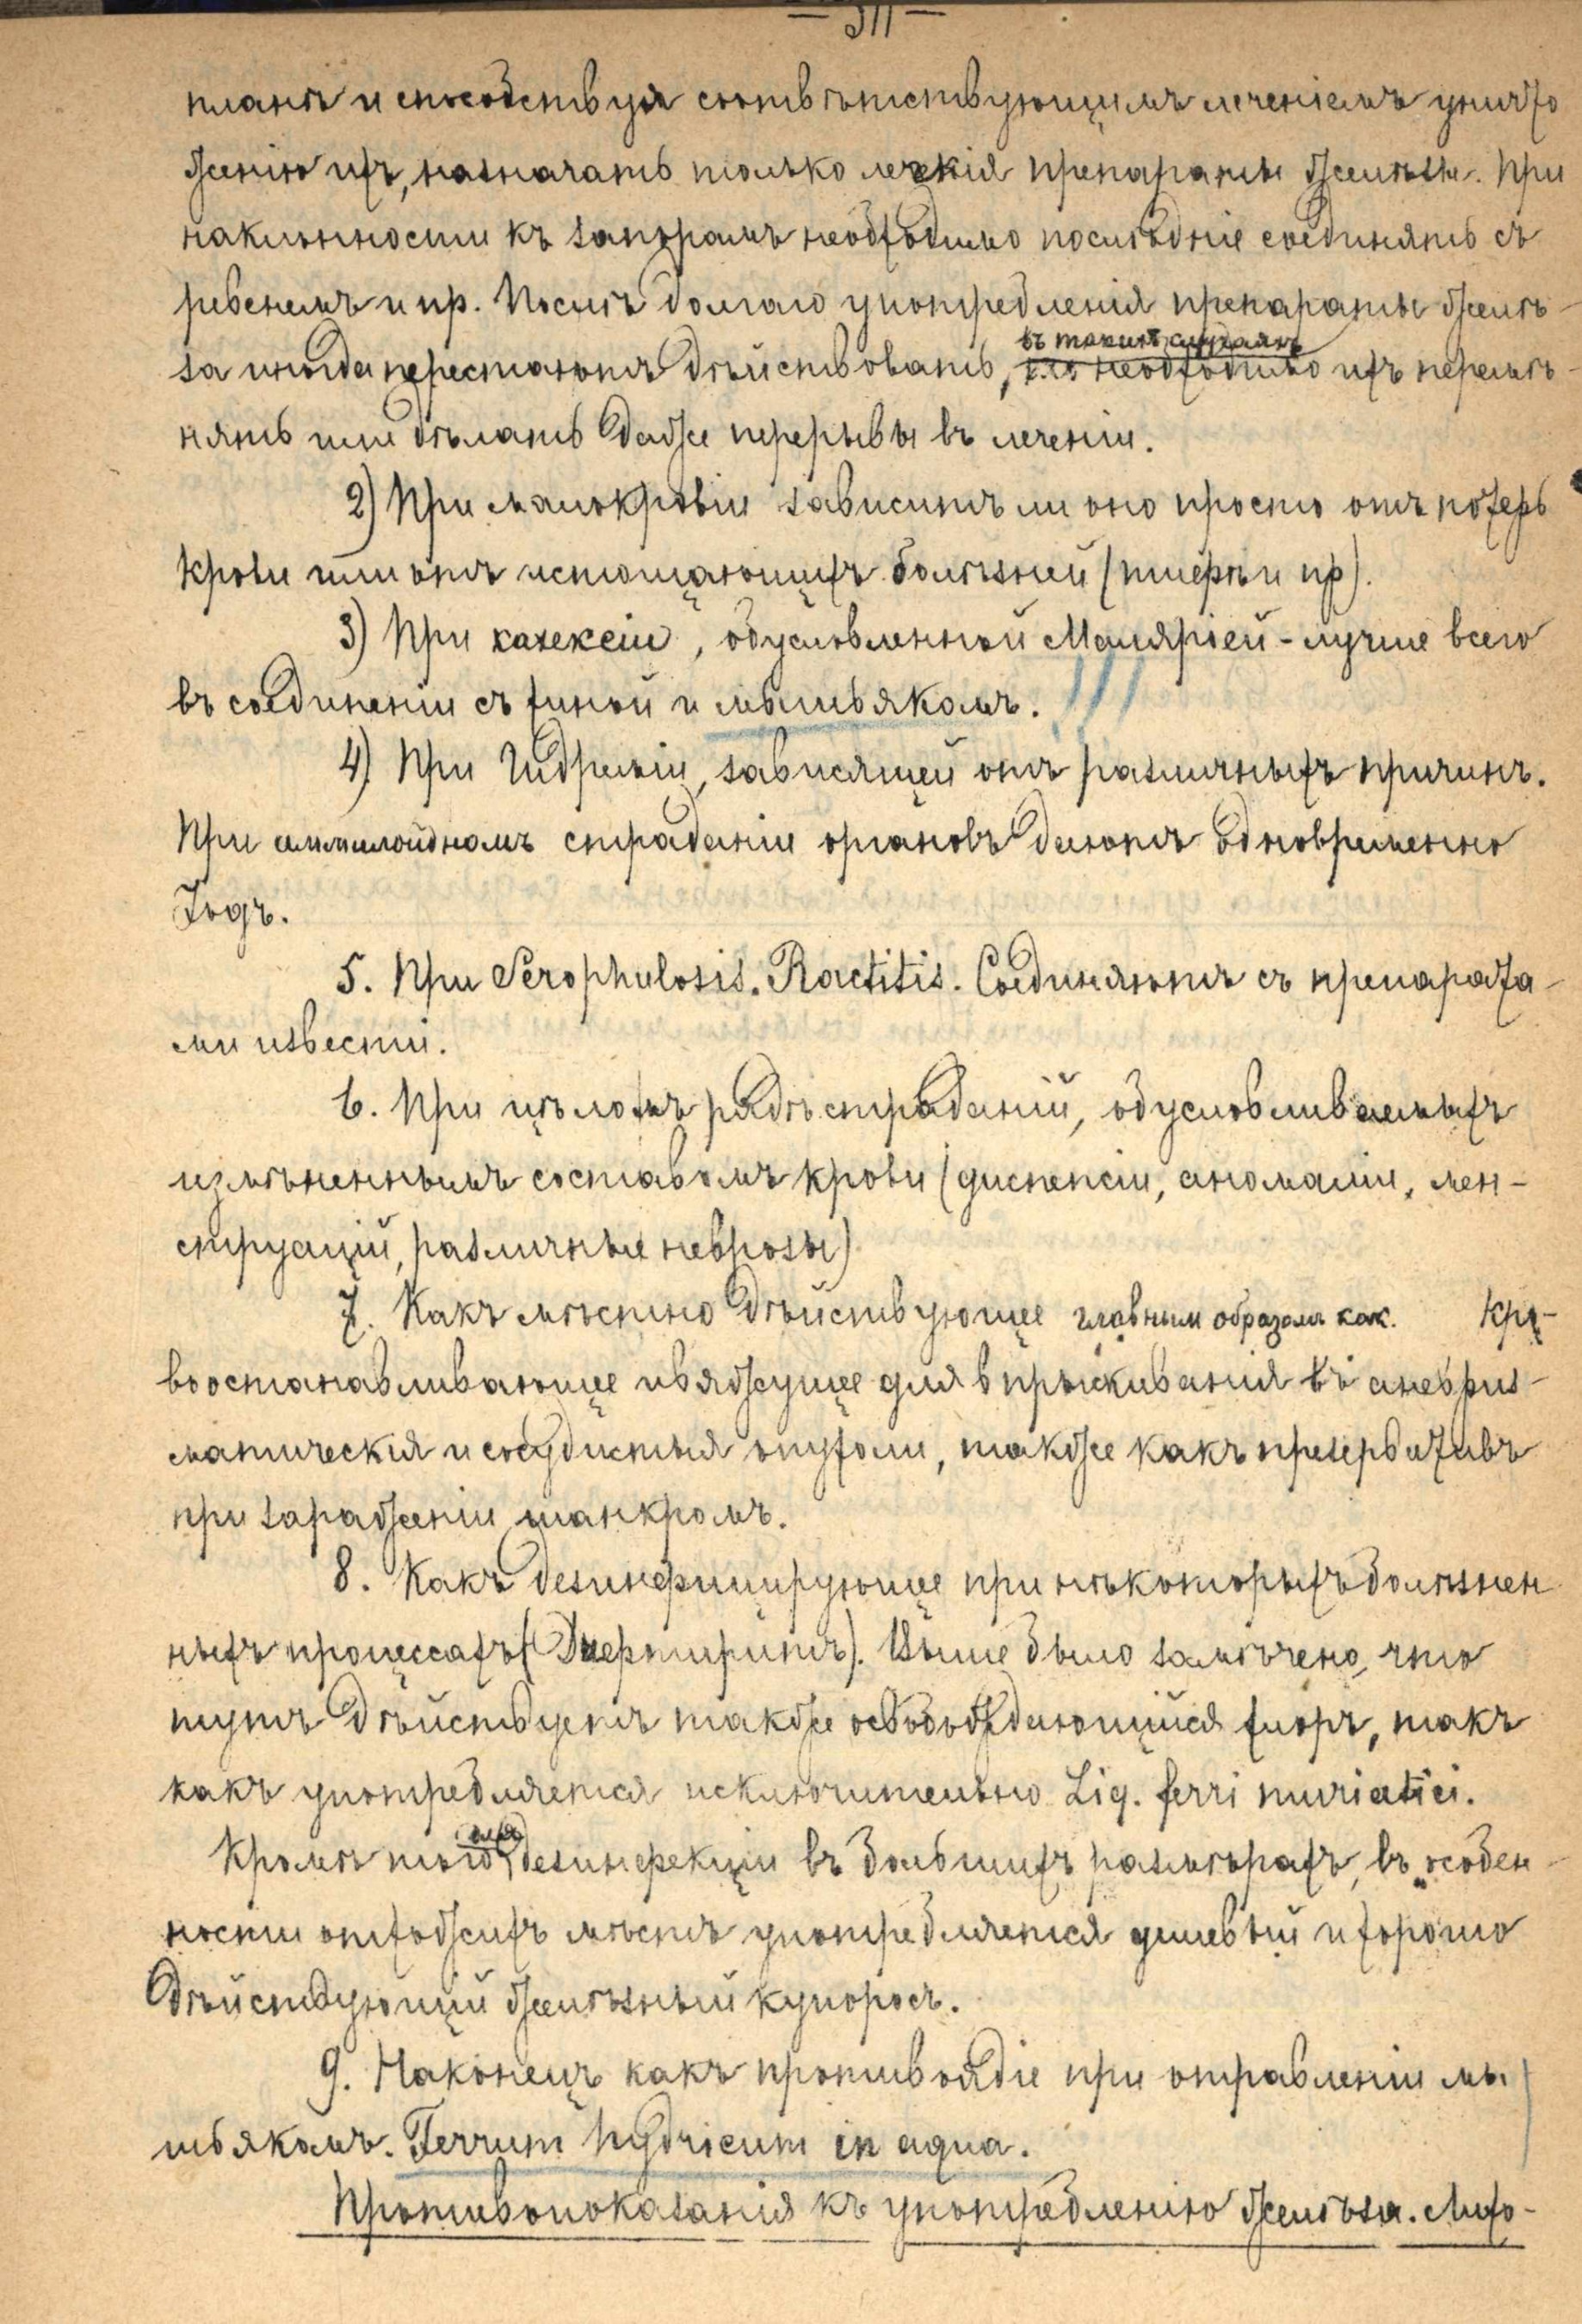 — 311 —
планъ и способствуя соотвѣтствующимъ леченіемъ уничто
женію ихъ, назначать только легкія препараты желѣза. При
наклонности къ запорамъ необходимо послѣдніе соединять съ
ревенемъ и пр. Послѣ долгаго употребленія препараты желѣ-
за иногда перестаютъ дѣйствовать, въ такихъ случаяхъ необходимо ихъ перемѣ-
нять или дѣлать даже перерывы въ леченіи.
2) При малокровіи зависитъ ли оно просто отъ потерь
крови или отъ истощающихъ болѣзней (тифъ и пр).
3) При кахексіи, обусловленной Маляріей - лучше всего
въ соединеніи съ хиной и мышьякомъ.
4) При Гидреміи, зависящей отъ различныхъ причинъ.
При аммилоидномъ страданіи органовъ даютъ одновременно
Іодъ.
5. При Scrophulosis. Rachitis. Соединяютъ съ препарата-
ми извести.
6. При цѣломъ рядѣ страданій, обусловливаемыхъ
измѣненнымъ составомъ крови (диспепсіи, аномаліи, мен-
струацій, различные неврозы)
7. Какъ мѣстно дѣйствующее главным образомъ как. кро-
воостанавливающее и вяжущее для впрыскиванія въ аневриз-
матическія и сосудистыя опухоли, также какъ презервативъ
при зараженіи шанкромъ.
8. Какъ дезинфицирующее при нѣкоторыхъ болѣзнен
ныхъ процессахъ (Дифтеритъ). Выше было замѣчено, что
тутъ дѣйствуетъ также освобождающійся хлоръ, такъ
какъ употребляется исключительно Liq. ferri muriatici.
Кромѣ того для дезинфекціи въ большихъ размѣрахъ, въ особен-
ности отхожихъ мѣстъ употребляется дешевый и хорошо
дѣйствующій желѣзный купоросъ.
9. Наконецъ какъ противоядіе при отравленіи мы
шьякомъ. Ferrum hydricum in aqua.
Противопоказанія къ употребленію желѣза. Лихо-